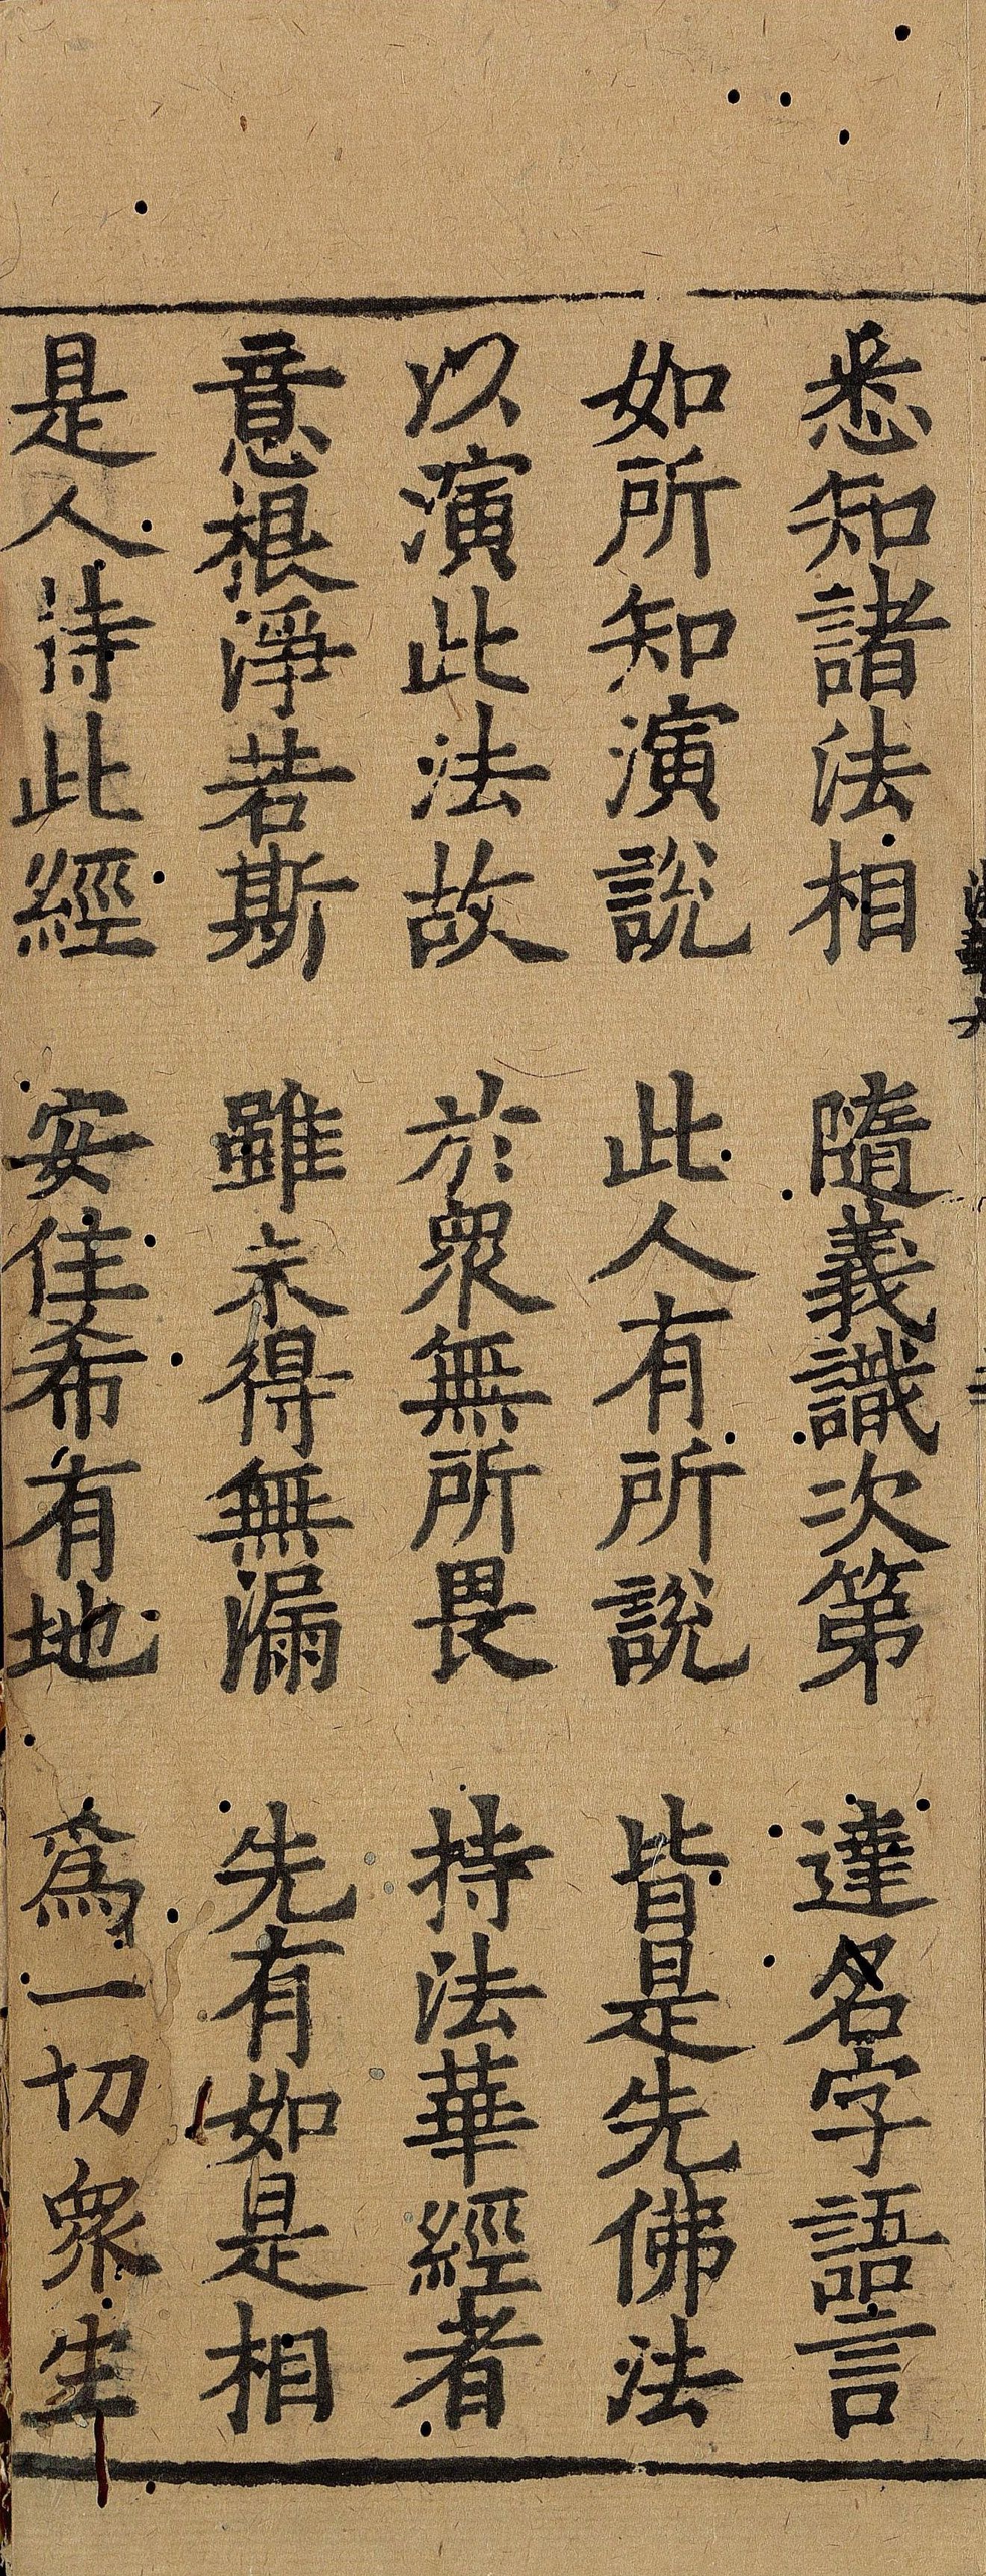 悉知諸法相　隨義識次第　達名字語言
如所知演說　此人有所說　皆是先佛法
以演此法故　於眾無所畏　持法華經者
意根淨若斯　雖未得無漏　先有如是相
是人持此經　安住希有地　爲一切眾生